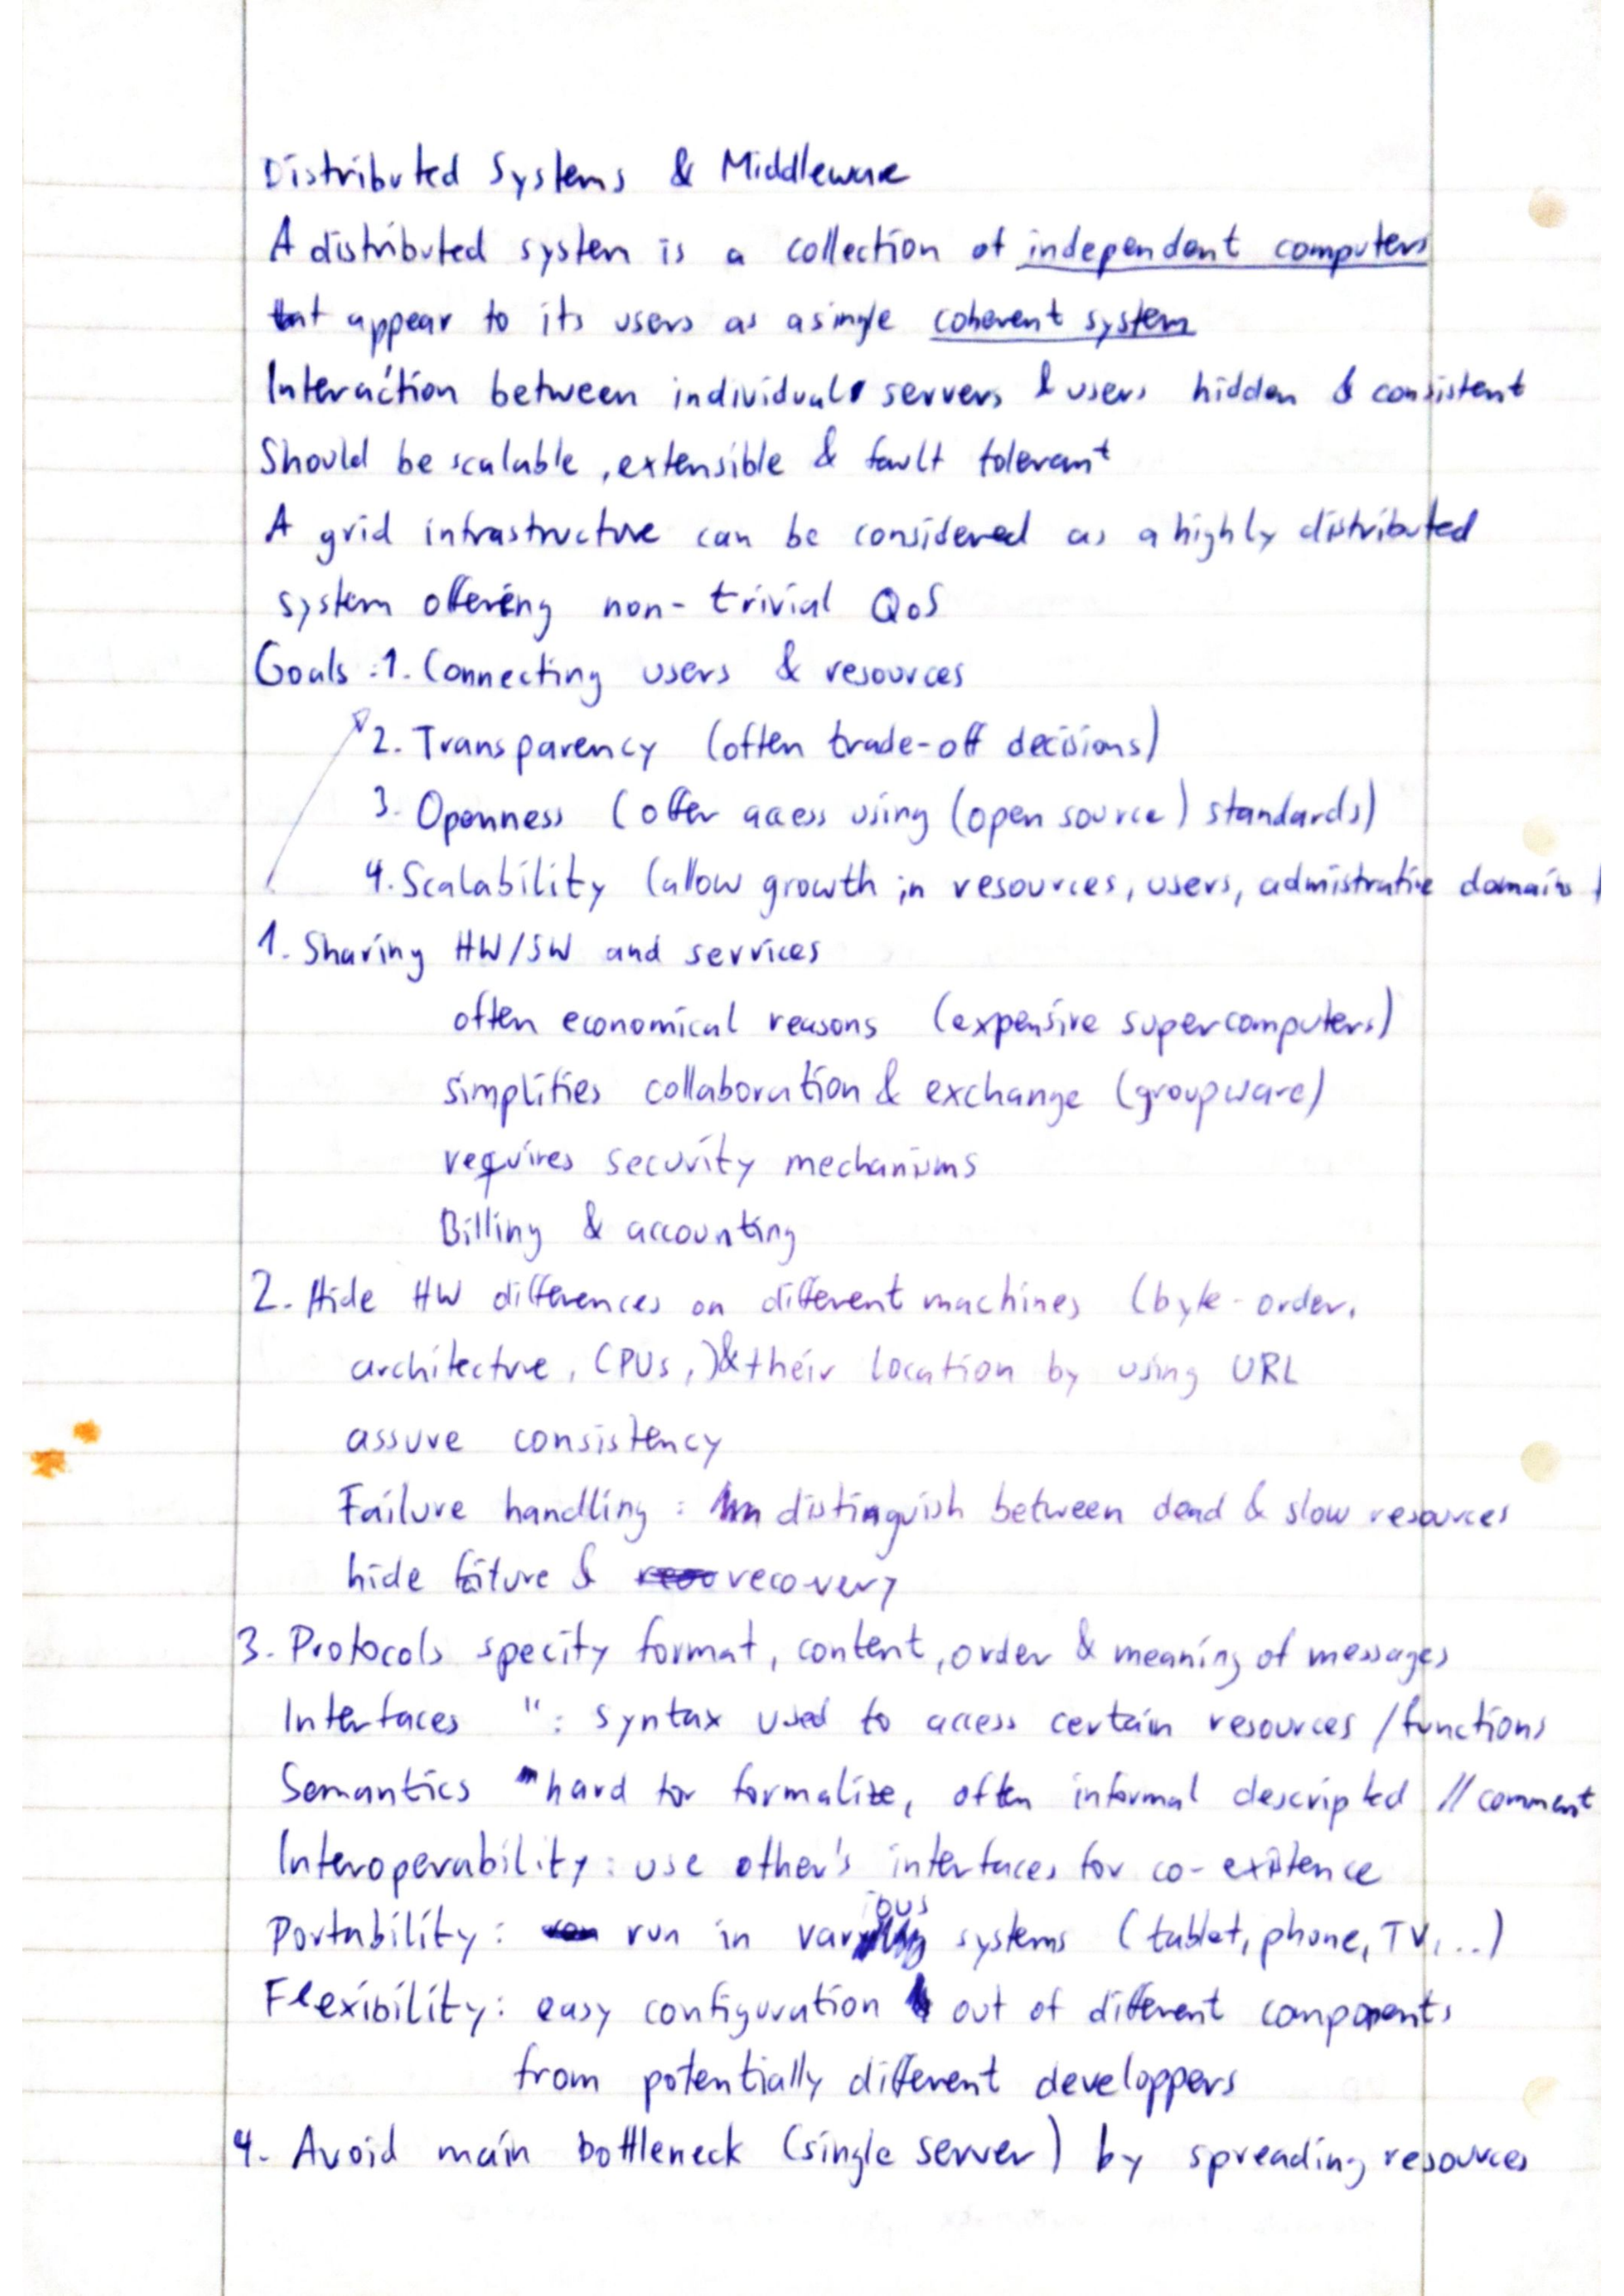 Distributed Systems & Middleware
A distributed system is a collection of independent computers
that appear to its users as a single coherent system
Interaction between individual servers & users hidden & consistent
Should be scalable, extensible & fault tolerant
A grid infrastructure can be considered as a highly distributed
system offering non-trivial QoS
Goals: 1. Connecting users & resources
2. Transparency (often trade-off decisions)
3. Openness (offer access using (open source) standards)
4. Scalability (allow growth in resources, users, admistrative domains
1. Sharing HW/SW and services
often economical reasons (expensive supercomputers)
simplifies collaboration & exchange (groupware)
requires security mechanisms
Billing & accounting
2. Hide HW differences on different machines (byte-order,
architecture, CPUs,) & their location by using URL
assure consistency
Failure handling: distinguish between dead & slow resources
hide & recovery
3. Protocols specify format, content, order & meaning of messages
Interfaces ": syntax used to access certain resources/functions
Semantics " hard for formalize, often informal descripted // comment
Interoperability: use other's interfaces for co-existence
Portability: run in various systems (tablet, phone, TV, ..)
Flexibility: easy configuration out of different components
from potentially different developpers
4. Avoid main bottleneck (single server) by spreading resources